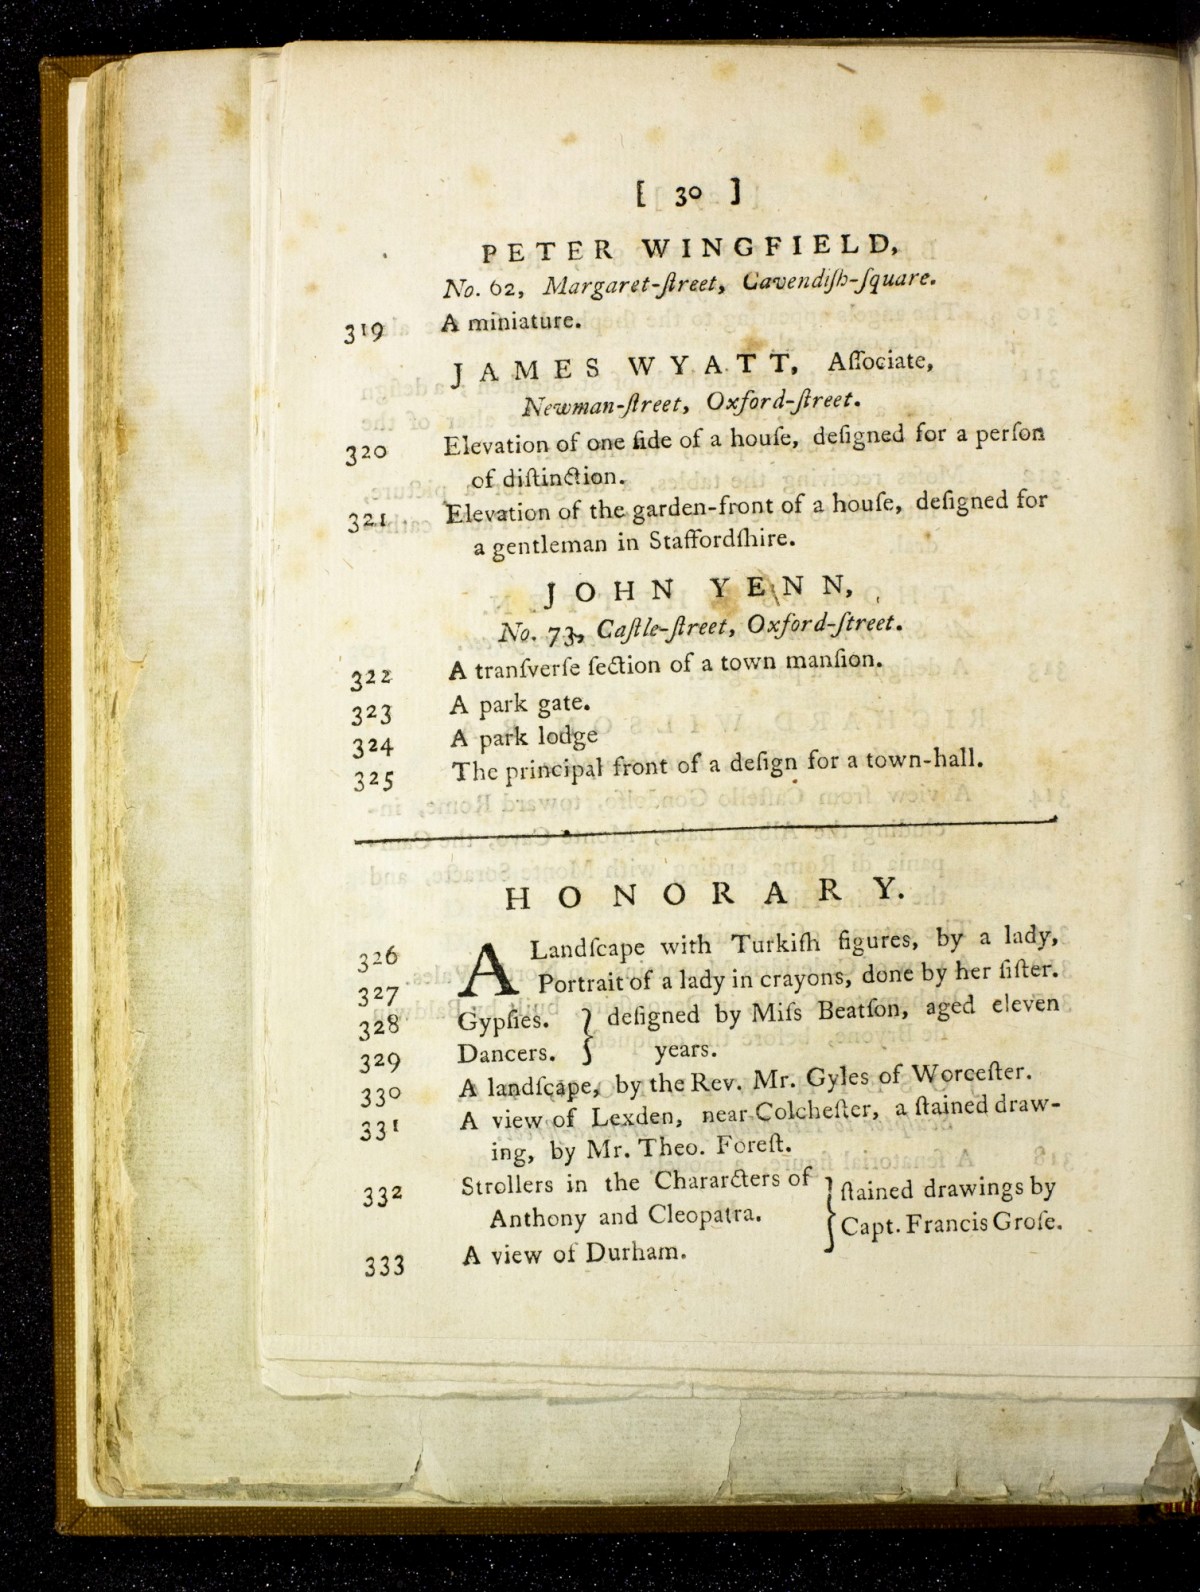 [ 30 ]
PETER WINGFIELD,
No. 62, Margaret-ſtreet, Cavendiſh-ſquare.
319 A miniature.
JAMES WYATT, Aſſociate,
Newman-ſtreet, Oxford-ſtreet.
320 Elevation of one ſide of a houſe, deſigned for a perſon
of diſtinction.
321 Elevation of the garden-front of a houſe, deſigned for
a gentleman in Staffordſhire.
JOHN YENN,
No. 73, Caſtle-ſtreet, Oxford-ſtreet.
322 A tranſverſe ſection of a town manſion.
323 A park gate.
324 A park lodge
325 The principal front of a deſign for a town-hall.
HONORARY.
326 A Landſcape with Turkiſh figures, by a lady,
327 Portrait of a lady in crayons, done by her ſiſter.
328 Gypſies. } deſigned by Miſs Beatſon, aged eleven
329 Dancers. } years.
330 A landſcape, by the Rev. Mr. Gyles of Worceſter.
331 A view of Lexden, near Colcheſter, a ſtained draw-
ing, by Mr. Theo. Foreſt.
332 Strollers in the Chararcters of } ſtained drawings by
Anthony and Cleopatra. } Capt. Francis Groſe.
333 A view of Durham.